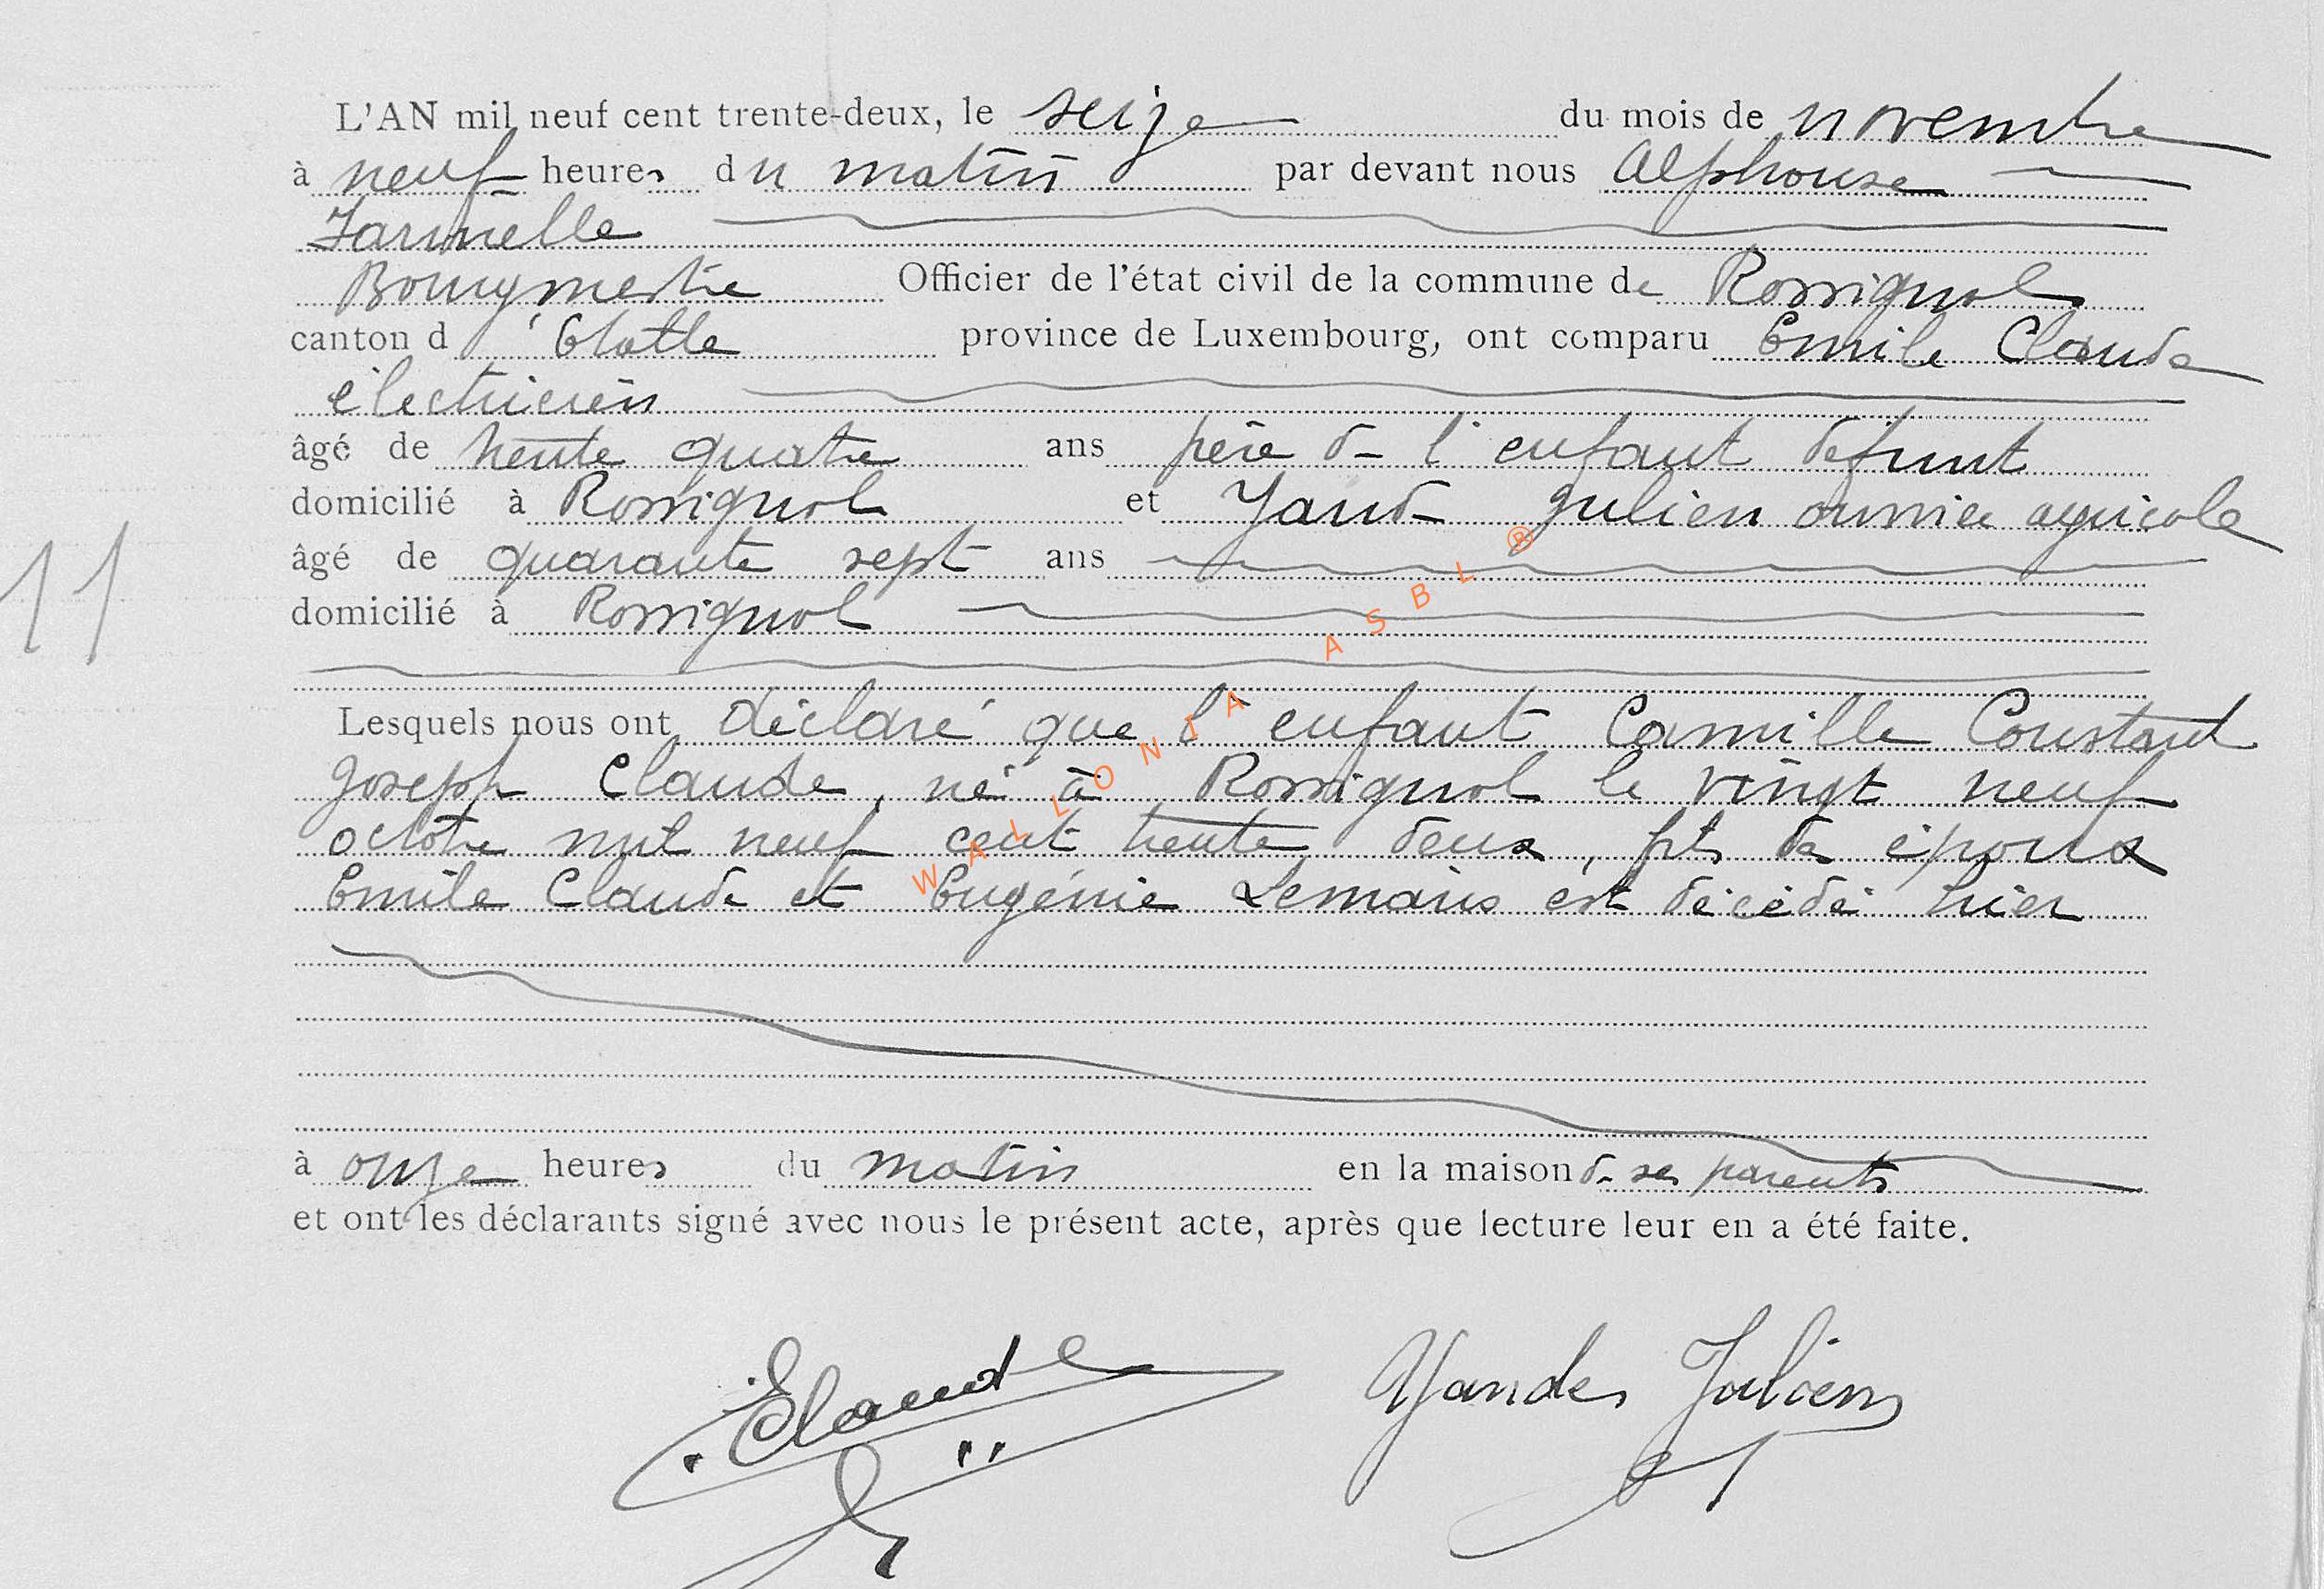 L'AN mil neuf cent trente-deux, le seize du mois de novembre
à neuf heures du matin par devant nous Alphonse
Bourgmestre Officier de l'état civil de la commune de Rossignol
canton d'Etalle province de Luxembourg, ont comparu Emile Claude
électricien
âgé de trente quatre ans père de l'enfant défunt
domicilié à Rossignol et Yande Julien ouvrier agricole
âgé de quarante sept ans
domicilié à Rossignol
11
Lesquels nous ont déclaré que l'enfant Camille Constant
Joseph Claude, né à Rossignol le vingt neuf
octobre mil neuf cent trente deux, fils de époux
Emile Claude et Eugénie Lemaire est décédé hier
à onze heures du matin en la maison de ses parents
et ont les déclarants signé avec nous le présent acte, après que lecture leur en a été faite.
EClaude Yande Julien
WALLONIA ASBL ®